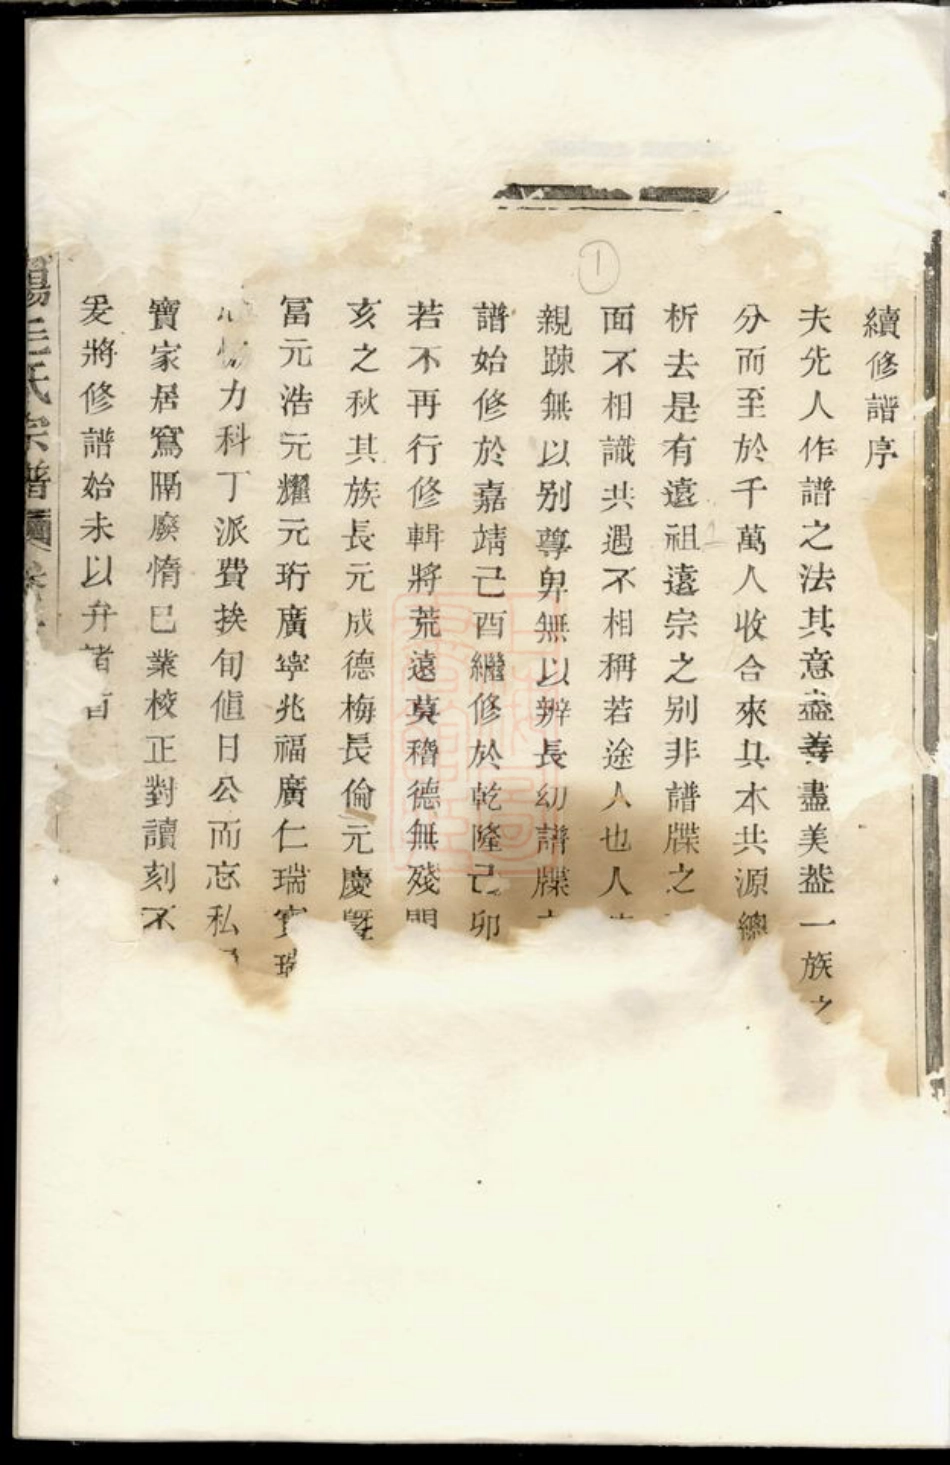 續修譜序
夫先人作譜之法其意盡善盡美葢一族之
分而至於千萬人收合來只本共源總
析去是有遠祖遠宗之别非譜牒之
面不相識共遇不相稱若途人也人
親踈無以别尊卑無以辨長幼譜牒
譜始修於嘉靖己酉繼修於乾隆己卯
若不再行修輯將荒遠莫稽德無殘
亥之秋其族長元成德梅長倫元慶曁
冨元浩元耀元珩廣寜兆福廣仁瑞寳瑞
力科丁派費挨旬値日公而忘私
寶家居窵隔廢惰巳業校正對讀刻不
爰將修譜始末以弁諸首
陽毛氏宗譜
①